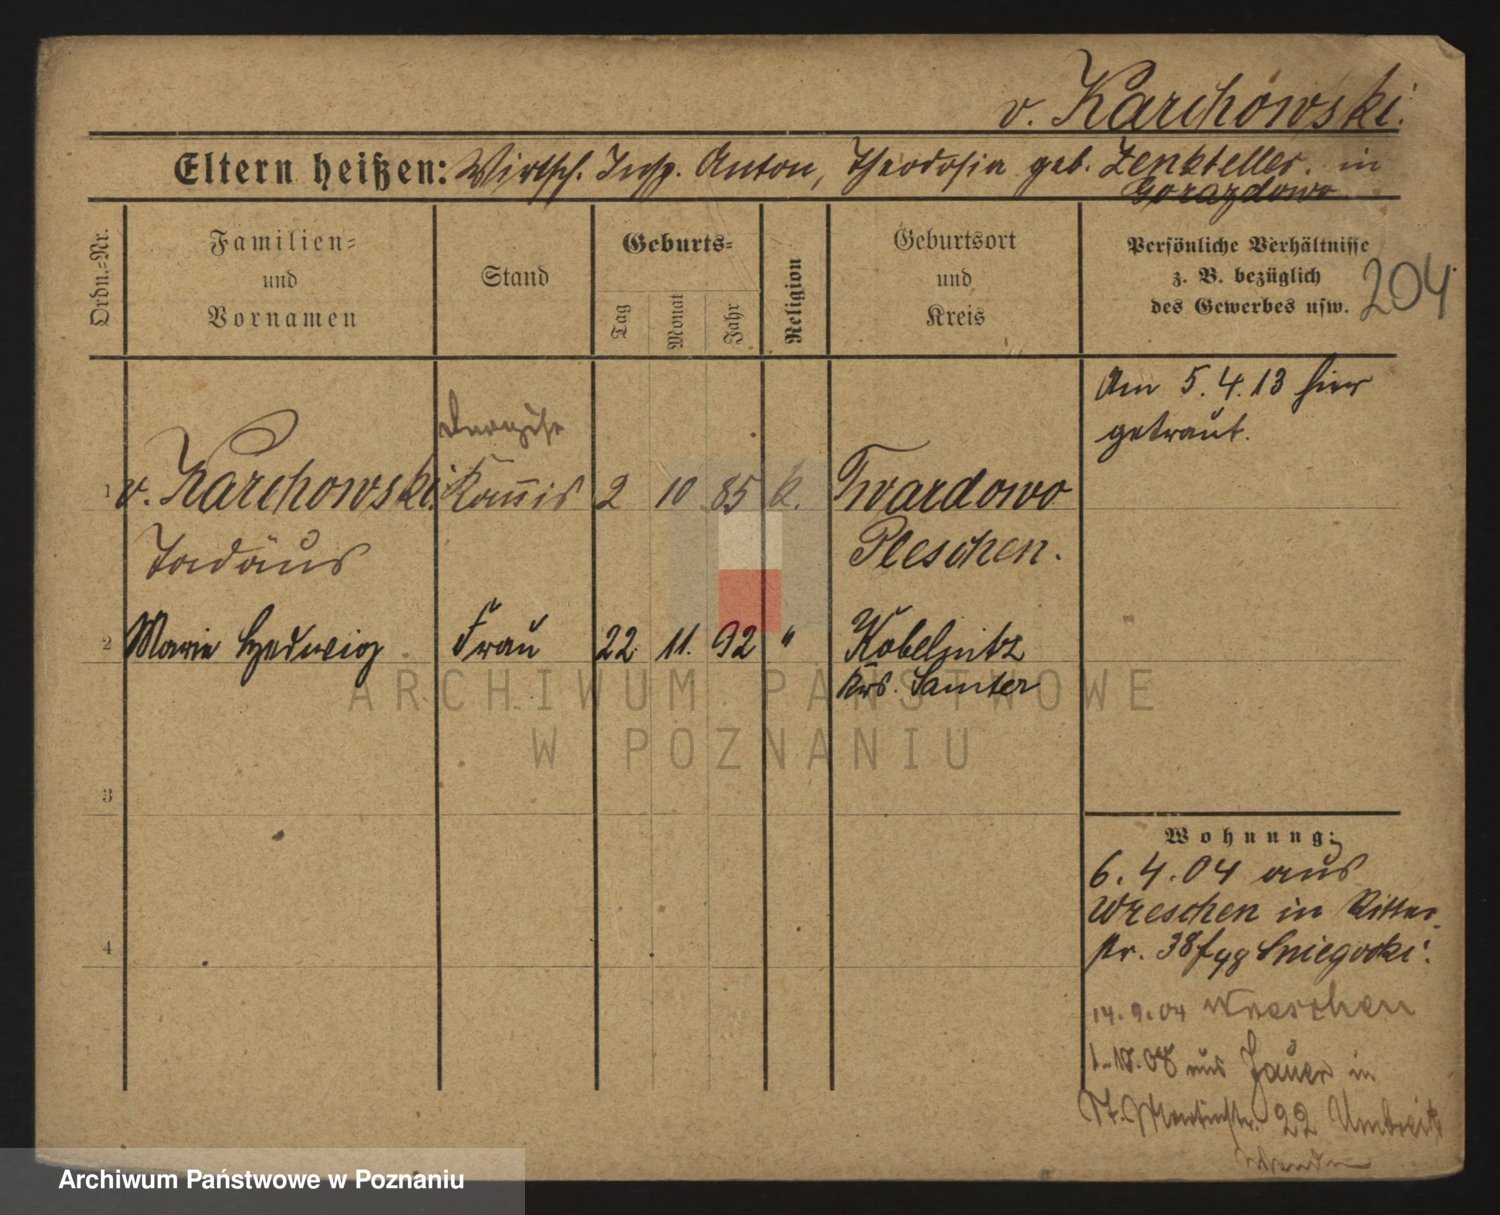 v. Karchowski.
Eltern heißen: Wirtsch. Insp. Anton, Theodosia geb. Zenkteller. in
Gorazdowo
Ordn.=Nr.
Familien=
und
Vornamen
Stand
Geburts=
Tag
Monat
Jahr
Religion
Geburtsort
und
Kreis
Persönliche Verhältnisse
z. B. bezüglich
des Gewerbes usw.
204
Am 5. 4. 13 hier
getraut.
1 v. Karchowski Kommis 2 10 85 k. Twardowo
Tadäus Pleschen.
2 Marie Hedwig Frau 22. 11. 92 " Kobelnitz
Krs. Samter
3
4
Wohnung:
6. 4. 04 aus
Wreschen in Ritter
str. 38 Sniegocki.
14. 9. 04 Wreschen
1. 10. 08 aus Jauer in
St. Martinstr. 22
ARCHIWUM PAŃSTWOWE
W POZNANIU
Archiwum Państwowe w Poznaniu